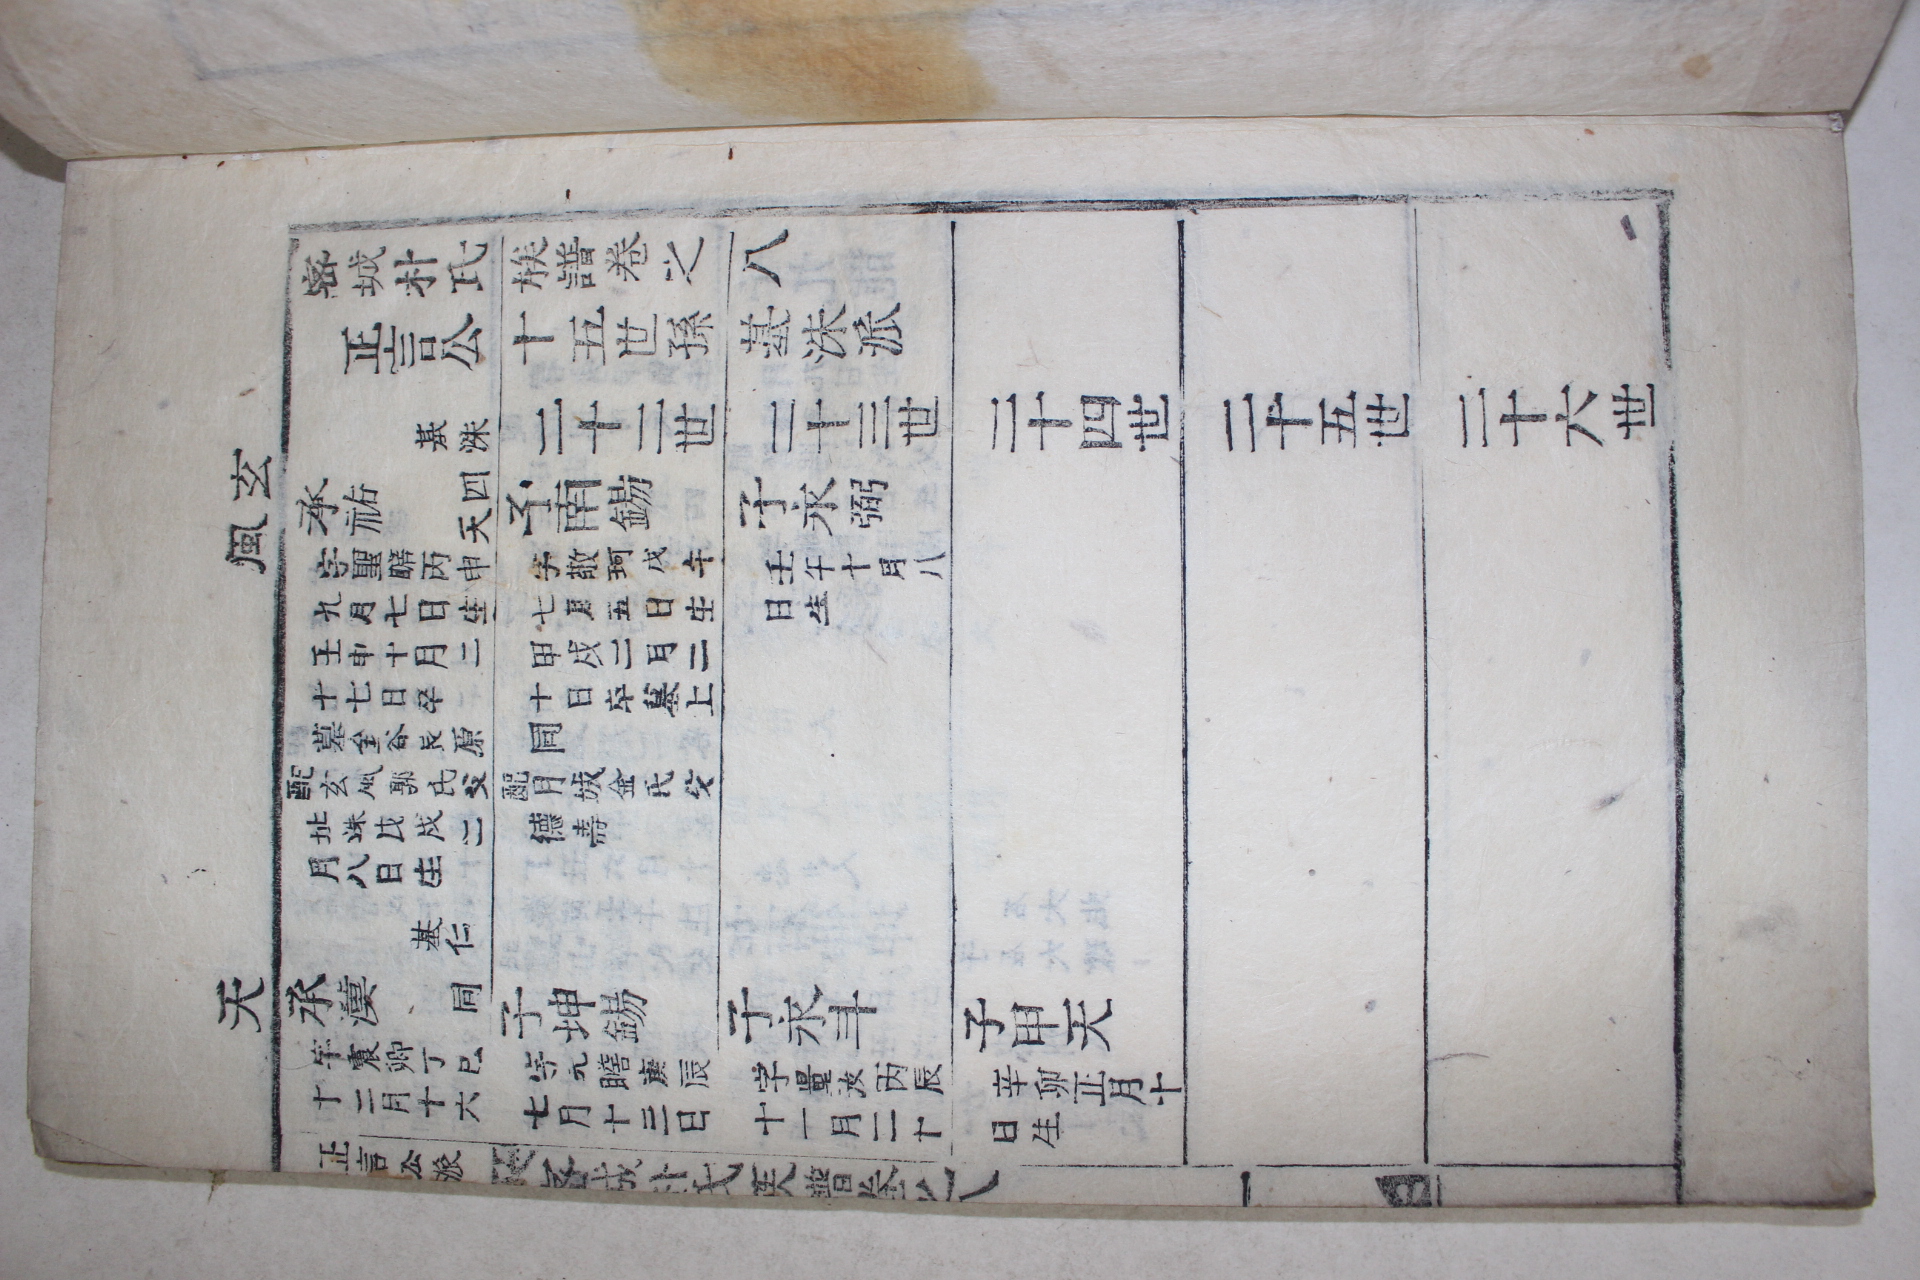 玄風
天
密城朴氏族譜卷之八
正言公十五世孫基洙派
基洙
二十二世
二十三世
二十四世
二十五世
二十六世
四
天
承祐
字聖瞻丙申
九月七日生
壬申十月二
十七日卒
墓金谷長原
配玄風郭氏父
址洙戊戌二
月八日生
子南錫
字敬珂戊午
七月五日生
甲戌二月二
十日卒墓上
同
配月城金氏父
德壽
子永弼
壬午十月八
日生
基仁
同
承漢
字震卿丁巳
十二月十六
子坤錫
字元瞻庚辰
七月十三日
子永斗
字量汝丙辰
十一月二十
子甲天
辛卯正月十
日生
正言公派
密城朴氏族譜卷之八
一